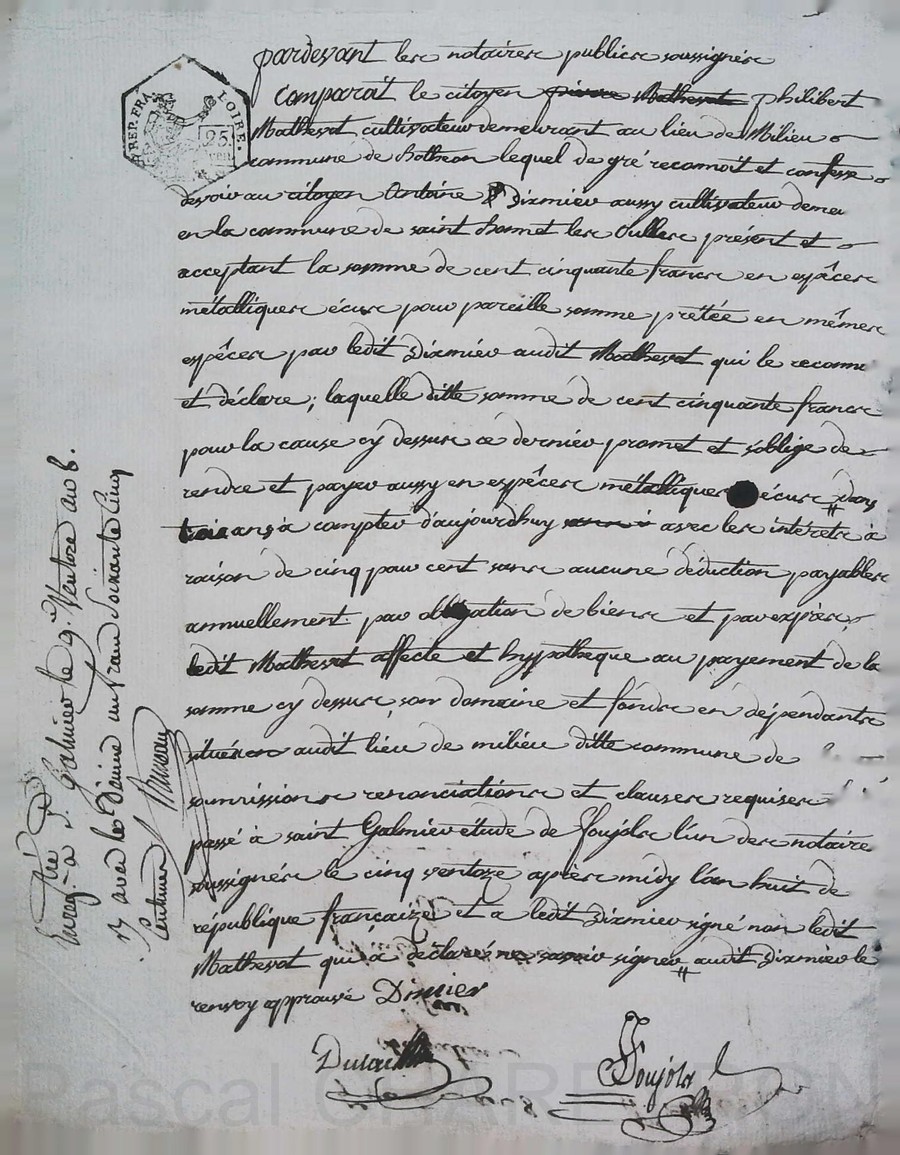 REP. FRA.
LOIRE.
25
pardevant les notaires publics soussignés
Comparait le citoyen pierre Mathevat philibert
Mathevat cultivateur demeurant au lieu de Milieu
commune de lequel de gré reconnoit et confesse
devoir au citoyen Antoine Dizmier aussy cultivateur demeu
en la commune de saint bonnet les Oulles présent et
acceptant la somme de cent cinquante francs en espêces
métalliques écus pour pareille somme prétée en mêmes
espêces par ledit Dizmier audit Mathevat qui le reconn
et déclare ; laquelle ditte somme de cent cinquante francs
pour la cause cy dessus ce dernier promet et s'oblige de
rendre et payer aussy en espêces métalliques écus dans
trois ans à compter d'aujourdhuy avec les intérets à
raison de cinq pour cent sans aucune déduction payables
annuellement. par obligation de biens et par exprès,
ledit Mathevat affecte et hypotheque au payement de la
somme cy dessus, son domaine et fonds en dépendants
situés audit lieu de milieu ditte commune de
soumissions renonciations et clauses requises
passé à saint Galmier étude de Soujols l'un des notaire
soussignés le cinq ventoze après midy l'an huit de
république françaize et a ledit Dizmier signé non ledit
Mathevat qui a déclaré ne savoir signer audit Dizmier le
renvoy approuvé Dimier
Soujols
Enreg. à St. Galmier le 9. Ventose an 8.
avec le Décime un franc soixante cinq
Centimes
Pascal